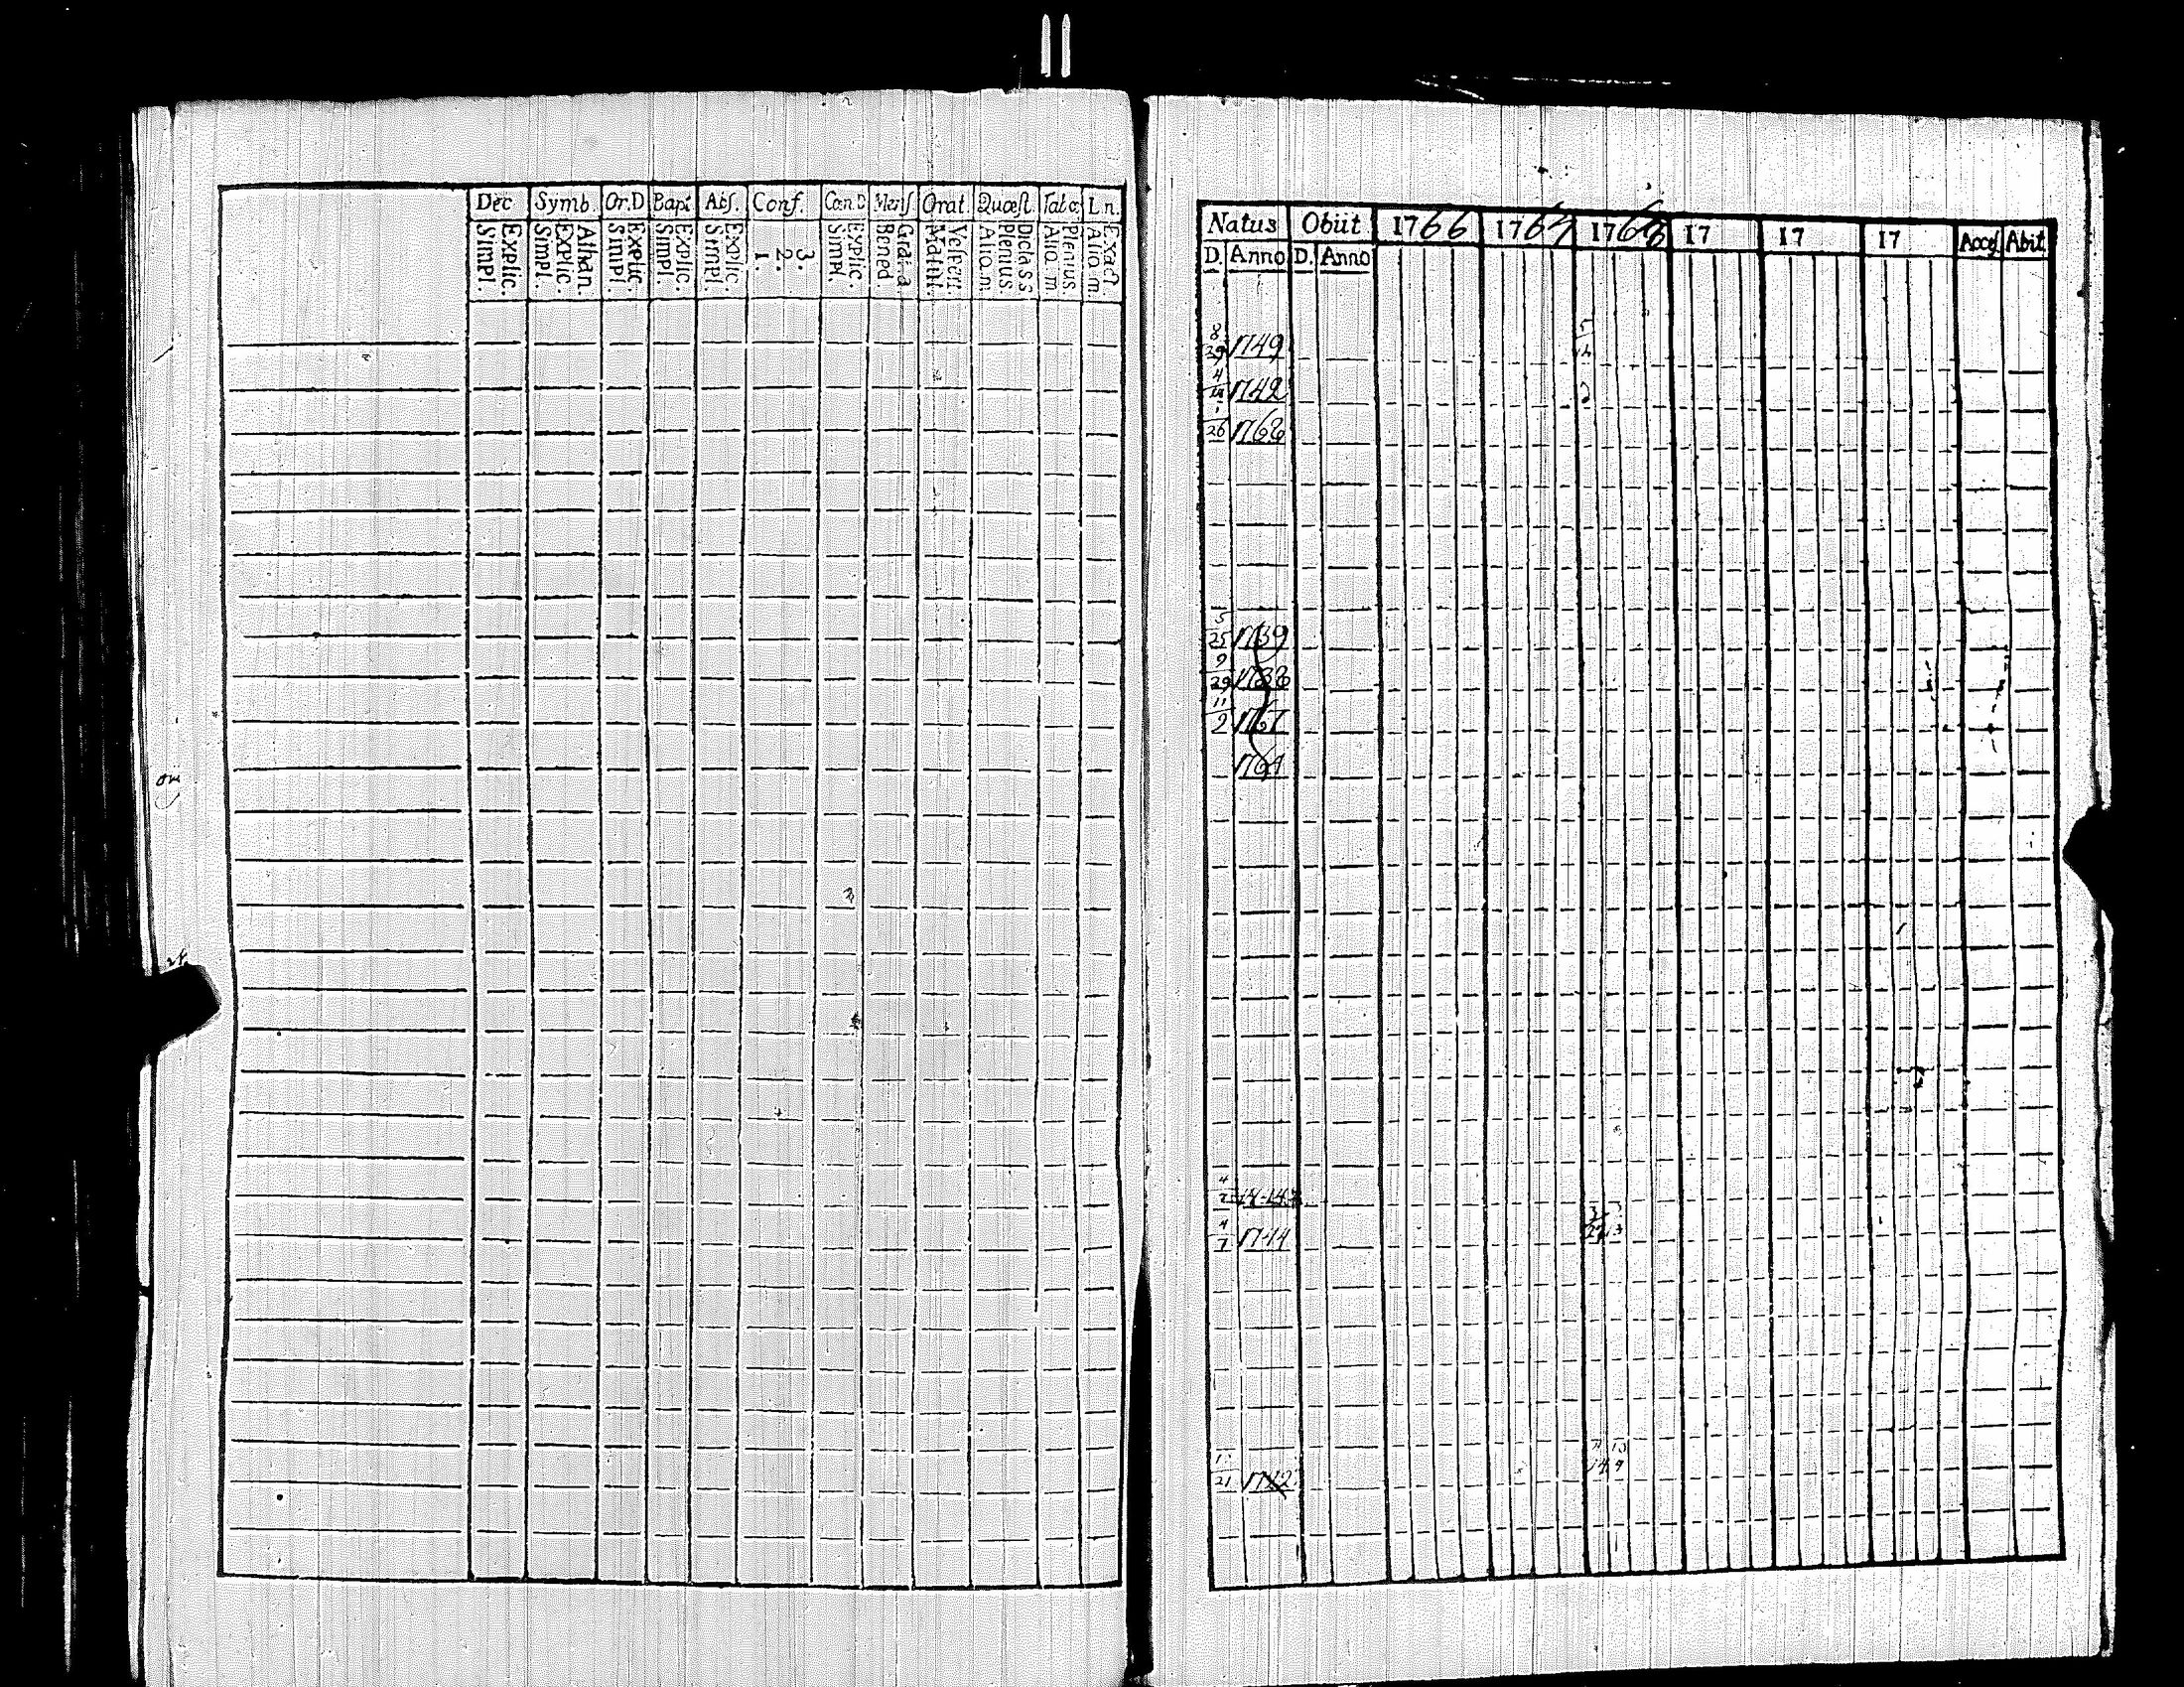 Dec Symb. Or.D Bapt Abs. Conf. Cœn.D Mens Orat. Quæst. Tab œ. L n.
Explic. Simpl. Athan. Explic. Simpl. Explic. Simpl. Explic. Simpl. Explic. Simpl. 3. 2. 1. Explic. Simpl. Grati a. Bened. Vespert. Matut. Dicta S.S. Plenius. Alio. m. Plenius. Alio. m. Exact. Alio m.
Natus Obiit 1766 1767 1768 17 17 17 Access Abit
D. Anno D. Anno
8
29 1749
4
1742
1
26 1763
5
25 1739
9
29 1733
11
2 1761
1764
4
4
7 1744
21 1742